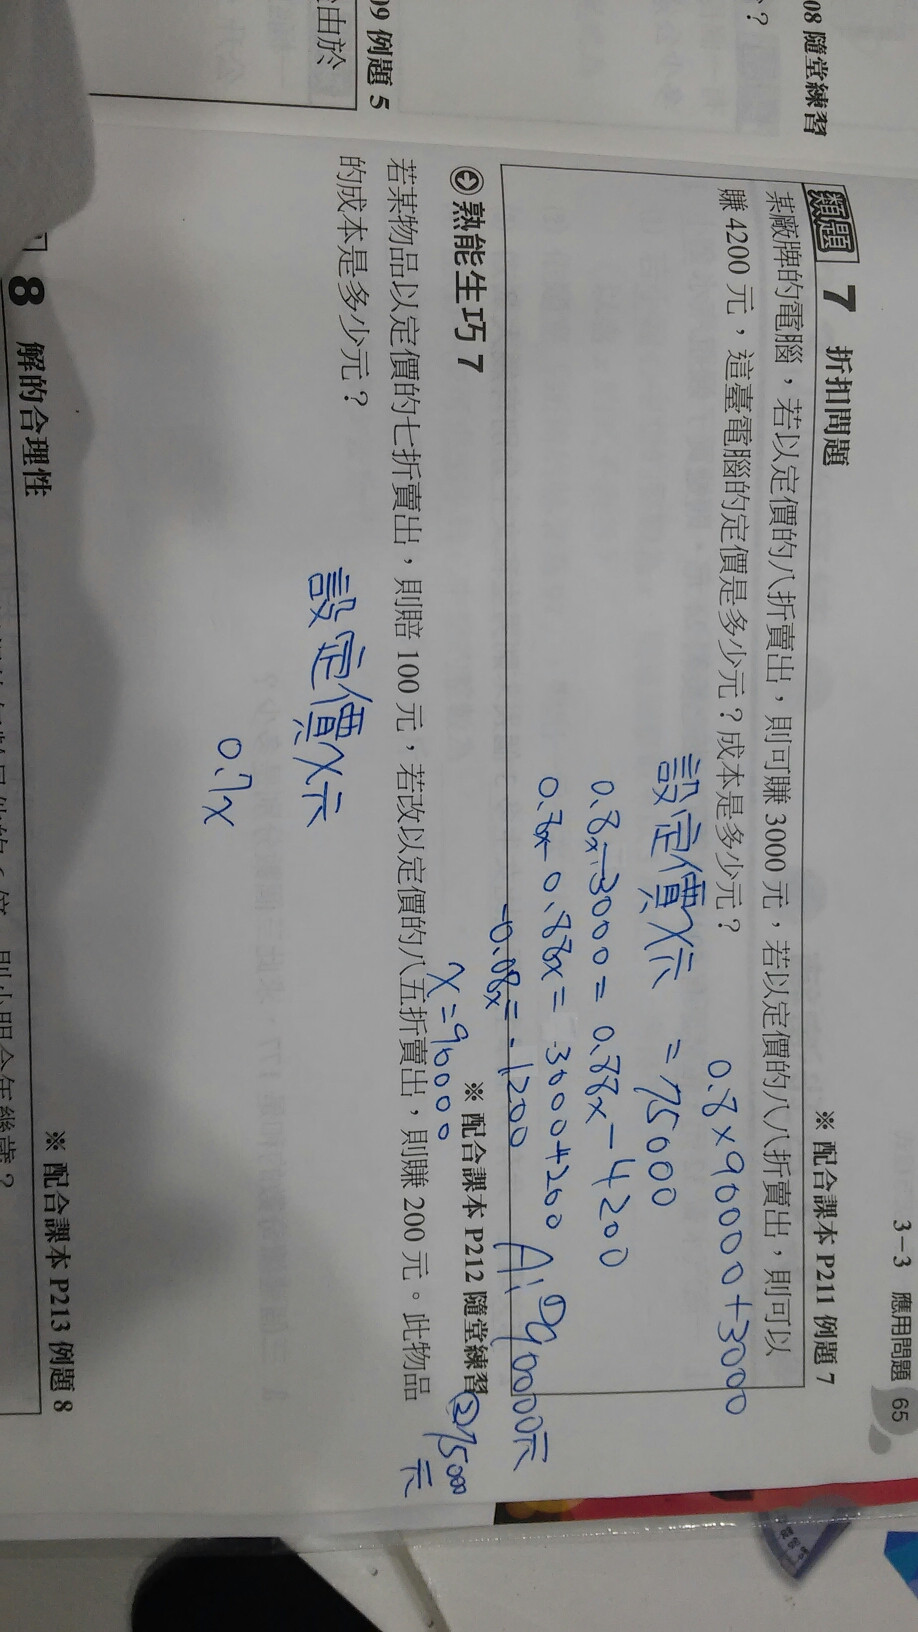 3-3 應用問題 65
08 隨堂練習
?
類題 7 折扣問題
※配合課本 P211 例題 7
某廠牌的電腦,若以定價的八折賣出,則可賺 3000 元,若以定價的八八折賣出,則可以
賺 4200 元,這臺電腦的定價是多少元?成本是多少元?
0.8×90000+3000
設定價x元 =75000
0.8x-3000=0.88x-4200
0.8x-0.88x=3000+200
-0.08x=-1200
x=90000
A:①90000元
②75000元
熟能生巧 7
※配合課本 P212 隨堂練習
若某物品以定價的七折賣出,則賠 100 元,若改以定價的八五折賣出,則賺 200 元。此物品
的成本是多少元?
設定價x元
0.7x
09 例題 5
由於
8 解的合理性
※配合課本 P213 例題 8
則小明今年幾歲?